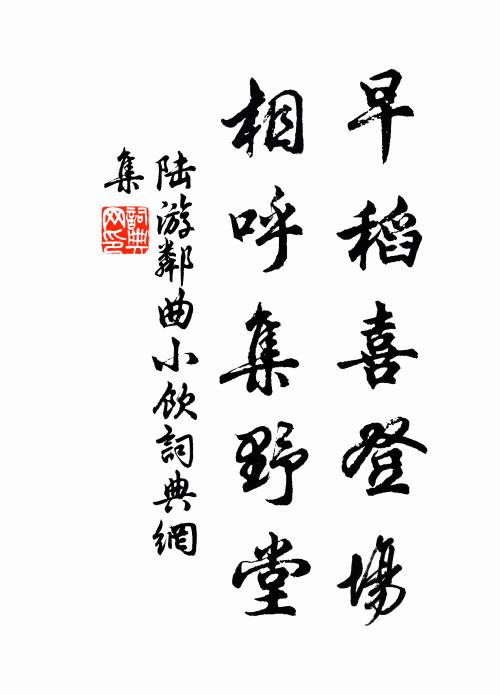 早稻喜登場
相呼集野堂
陆游鄰曲小飲詞典網
集
詞典
网印